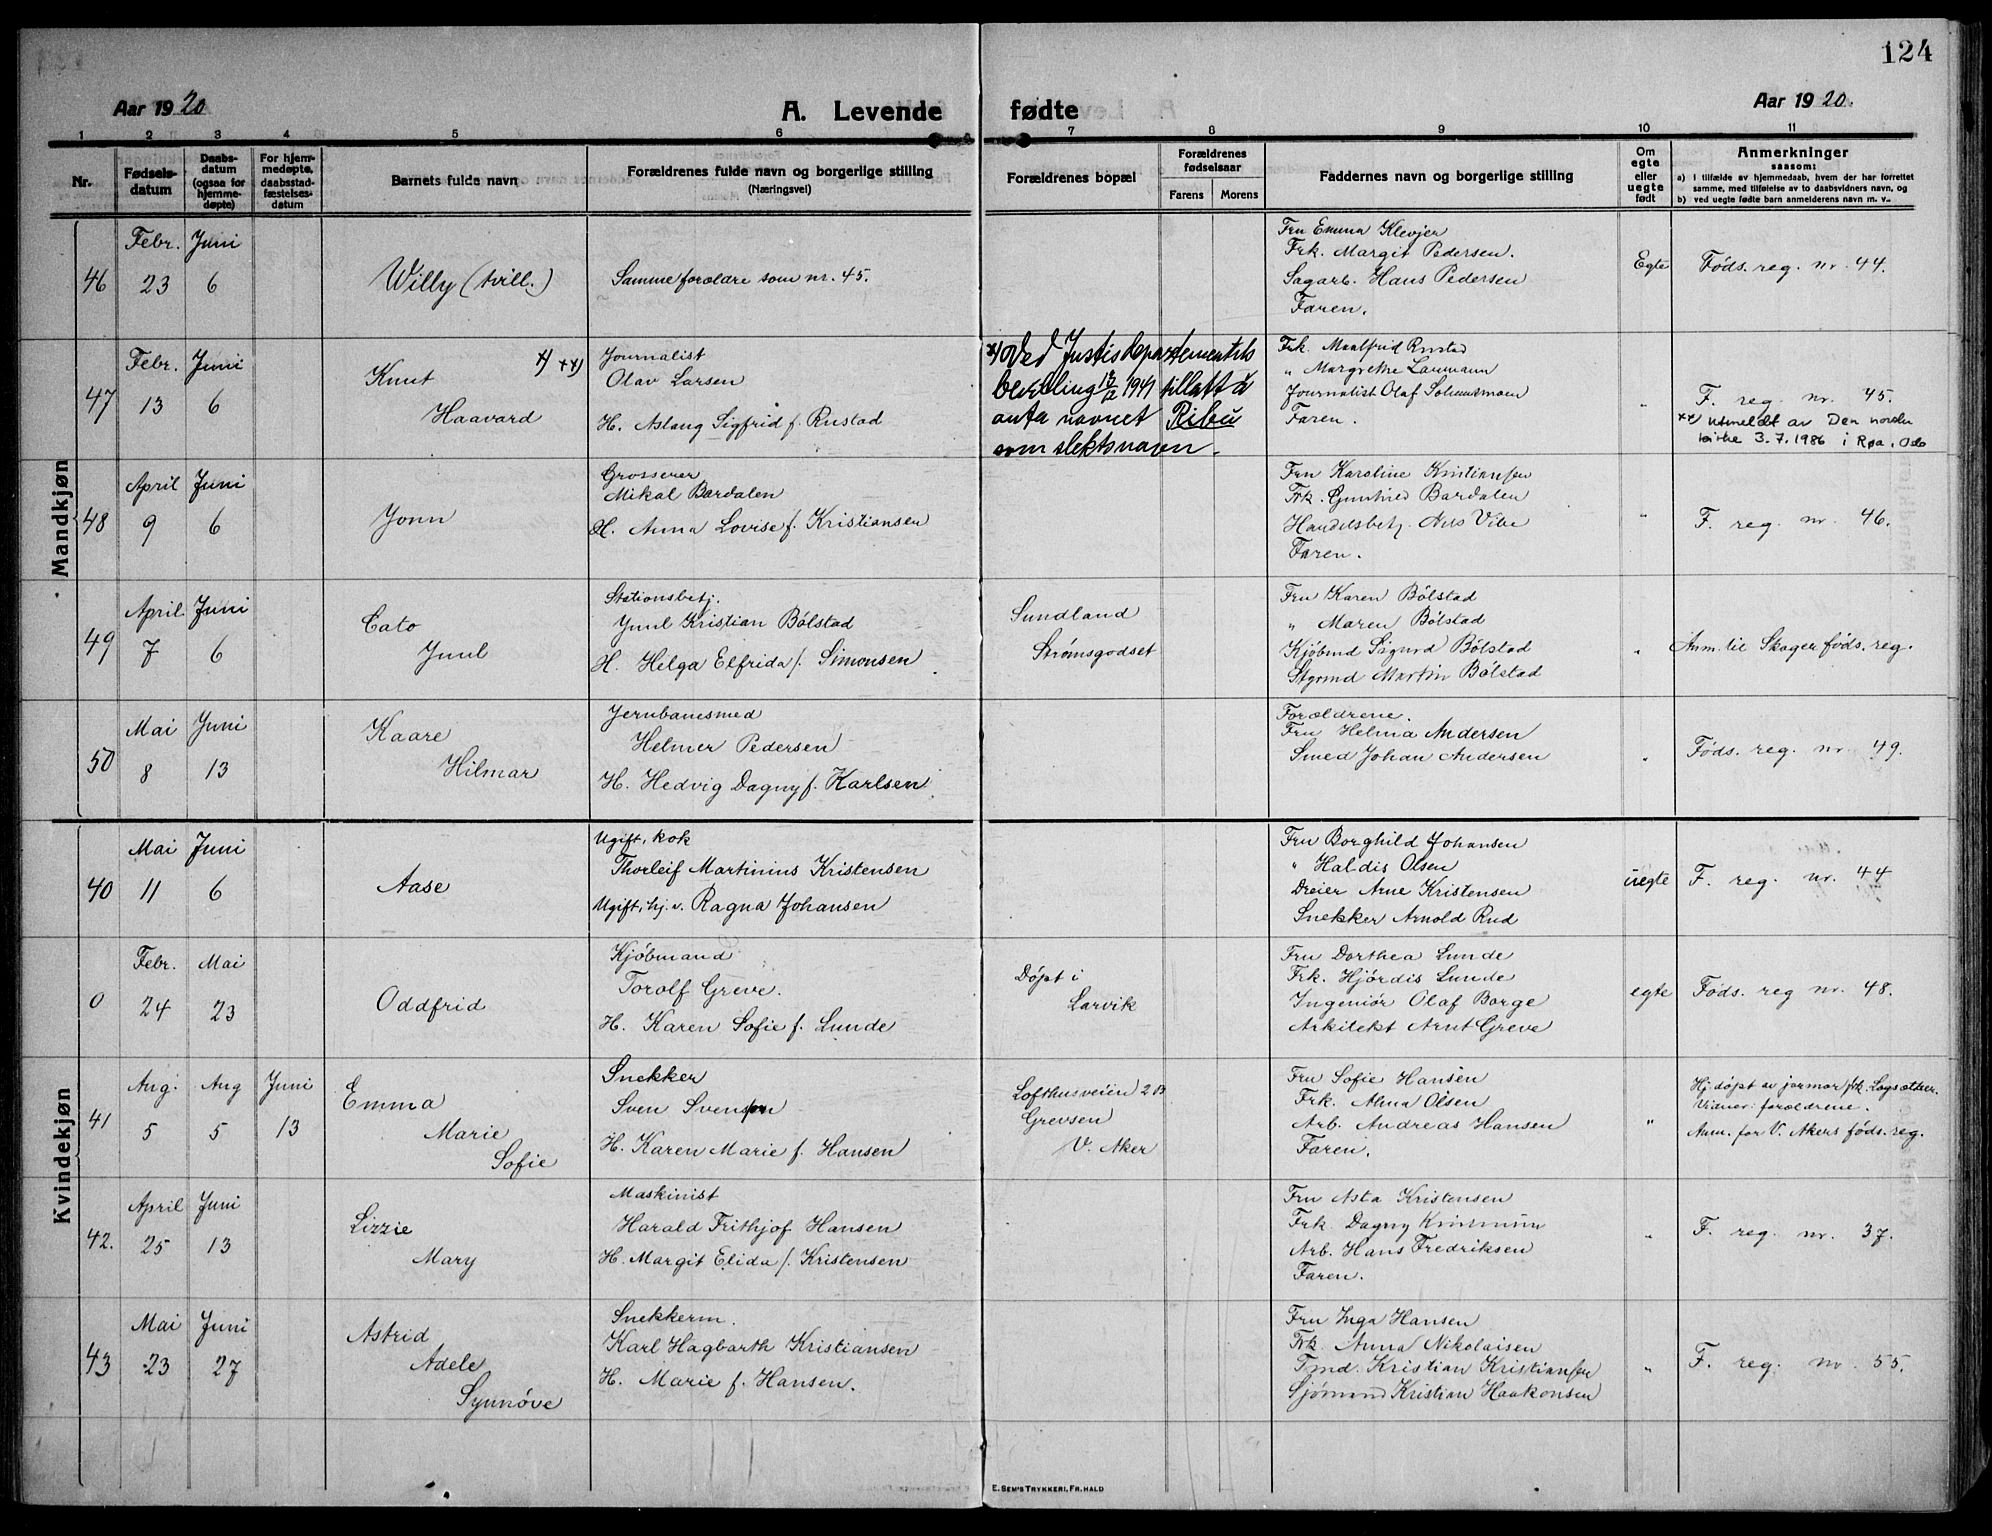 124
Aar 1920
A. Levende fødte
Aar 1920.
1 2 3 4 5 6 7 8 9 10 11
Nr.
Fødsels-
datum
Daabs-
datum
(ogsaa for
hjemme-
døpte)
For hjem-
medøpte,
daabsstad-
fæstelses-
datum
Barnets fulde navn
Forældrenes fulde navn og borgerlige stilling
(Næringsvei)
Forældrenes bopæl
Forældrenes
fødselsaar
Farens Morens
Faddernes navn og borgerlige stilling
Om
egte
eller
uegte
født
Anmerkninger
saasom:
a) i tilfælde av hjemmedaab, hvem der har forrettet
samme, med tilføielse av to daabsvidners navn, og
b) ved uegte fødte barn anmelderens navn m. v.
Mandkjøn
46
Febr. Juni
23 6
Willy (tvill.)
Samme forældre som nr. 45.
Fru Emma Klevjer
Frk. Margit Pedersen.
Sagarb. Hans Pedersen
Faren.
Egte
Føds. reg. nr. 44.
47
Febr. Juni
13 6
Knut x) xx)
Haavard
Journalist
Olav Larsen
H. Aslaug Sigfrid f. Rustad
x) Ved Justisdepartementets
bevilling 13/12 1941 tillatt å
anta navnet Ribu
som slektsnavn.
Frk. Maalfrid Rustad
" Margrethe Laumann
Journalist Olaf Solumsmoen
Faren.
"
F. reg. nr. 45.
xx) utmeldt av Den norske
kirke 3.7.1986 i Røa, Oslo
48
April Juni
9 6
Jonn
Grosserer
Mikal Bardalen
H. Anna Lovise f. Kristiansen
Fru Karoline Kristiansen
Frk. Gunhild Bardalen
Handelsbetj. Nils Vibe
Faren.
"
F. reg. nr. 46.
49
April Juni
7 6
Cato
Juul
Stationsbetj.
Juul Kristian Bølstad
H. Helga Elfrida f. Simonsen
Sundland
Strømsgodset
Fru Karen Bølstad
" Maren Bølstad
Kjøbmd Sigurd Bølstad
Styrmd Martin Bølstad
"
Anm. til Skoger føds. reg.
50
Mai Juni
8 13
Kaare
Hilmar
Jernbanesmed
Helmer Pedersen
H. Hedvig Dagny f. Karlsen
Forældrene.
Fru Helma Andersen
Smed Johan Andersen
"
Føds. reg. nr. 49.
Kvindekjøn
40
Mai Juni
11 6
Aase
Ugift, kok
Thorleif Martinius Kristensen
Ugift, hj. v. Ragna Johansen
Fru Borghild Johansen
" Haldis Olsen
Dreier Arne Kristensen
Snekker Arnold Rud
uegte
F. reg. nr. 44
0
Febr. Mai
24 23
Oddfrid
Kjøbmand
Torolf Greve.
H. Karen Sofie f. Lunde
Døpt i
Larvik
Fru Dorthea Lunde
Frk. Hjørdis Lunde
Ingeniør Olaf Borge
Arkitekt Arnt Greve
egte
Føds. reg nr. 48.
41
Aug. Aug Juni
5 5 13
Emma
Marie
Sofie
Snekker
Sven Svensen
H. Karen Marie f. Hansen
Lofthusveien 2 B
Grevsen
V. Aker
Fru Sofie Hansen
Frk. Alma Olsen
Arb. Andreas Hansen
Faren.
"
Hj. døpt av jormor frk. Lagsætter.
Vidner: forældrene.
Anm. for V. Akers føds. reg.
42.
April Juni
25 13
Lizzie
Mary
Maskinist
Harald Frithjof Hansen
H. Margit Elida f. Kristensen
Fru Asta Kristensen
Frk. Dagny
Arb. Hans Fredriksen
Faren.
"
F. reg. nr. 37.
43
Mai Juni
23 27
Astrid
Adele
Synnøve
Snekkerm.
Karl Hagbarth Kristiansen
H. Marie f. Hansen.
Fru Inga Hansen
Frk. Anna Nikolaisen
Tmd. Kristian Kristiansen
Sjømand Kristian Haakonsen
"
F. reg. nr. 55.
E. SEM'S TRYKKERI, FR.HALD